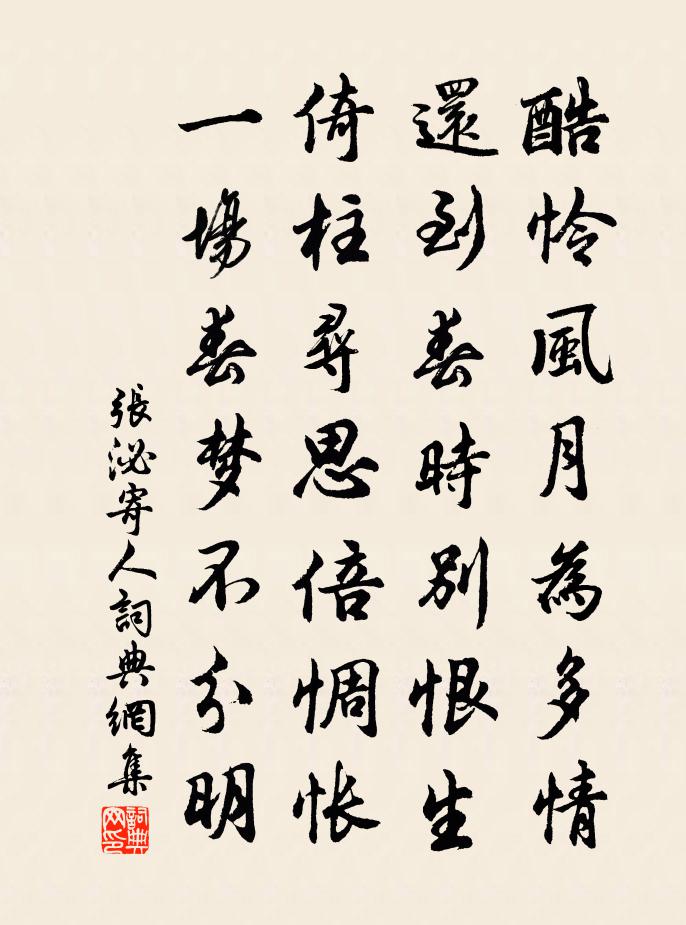 酷怜風月為多情
還到春時別恨生
倚柱尋思倍惆怅
一場春梦不分明
張泌寄人詞典網集
詞典网印